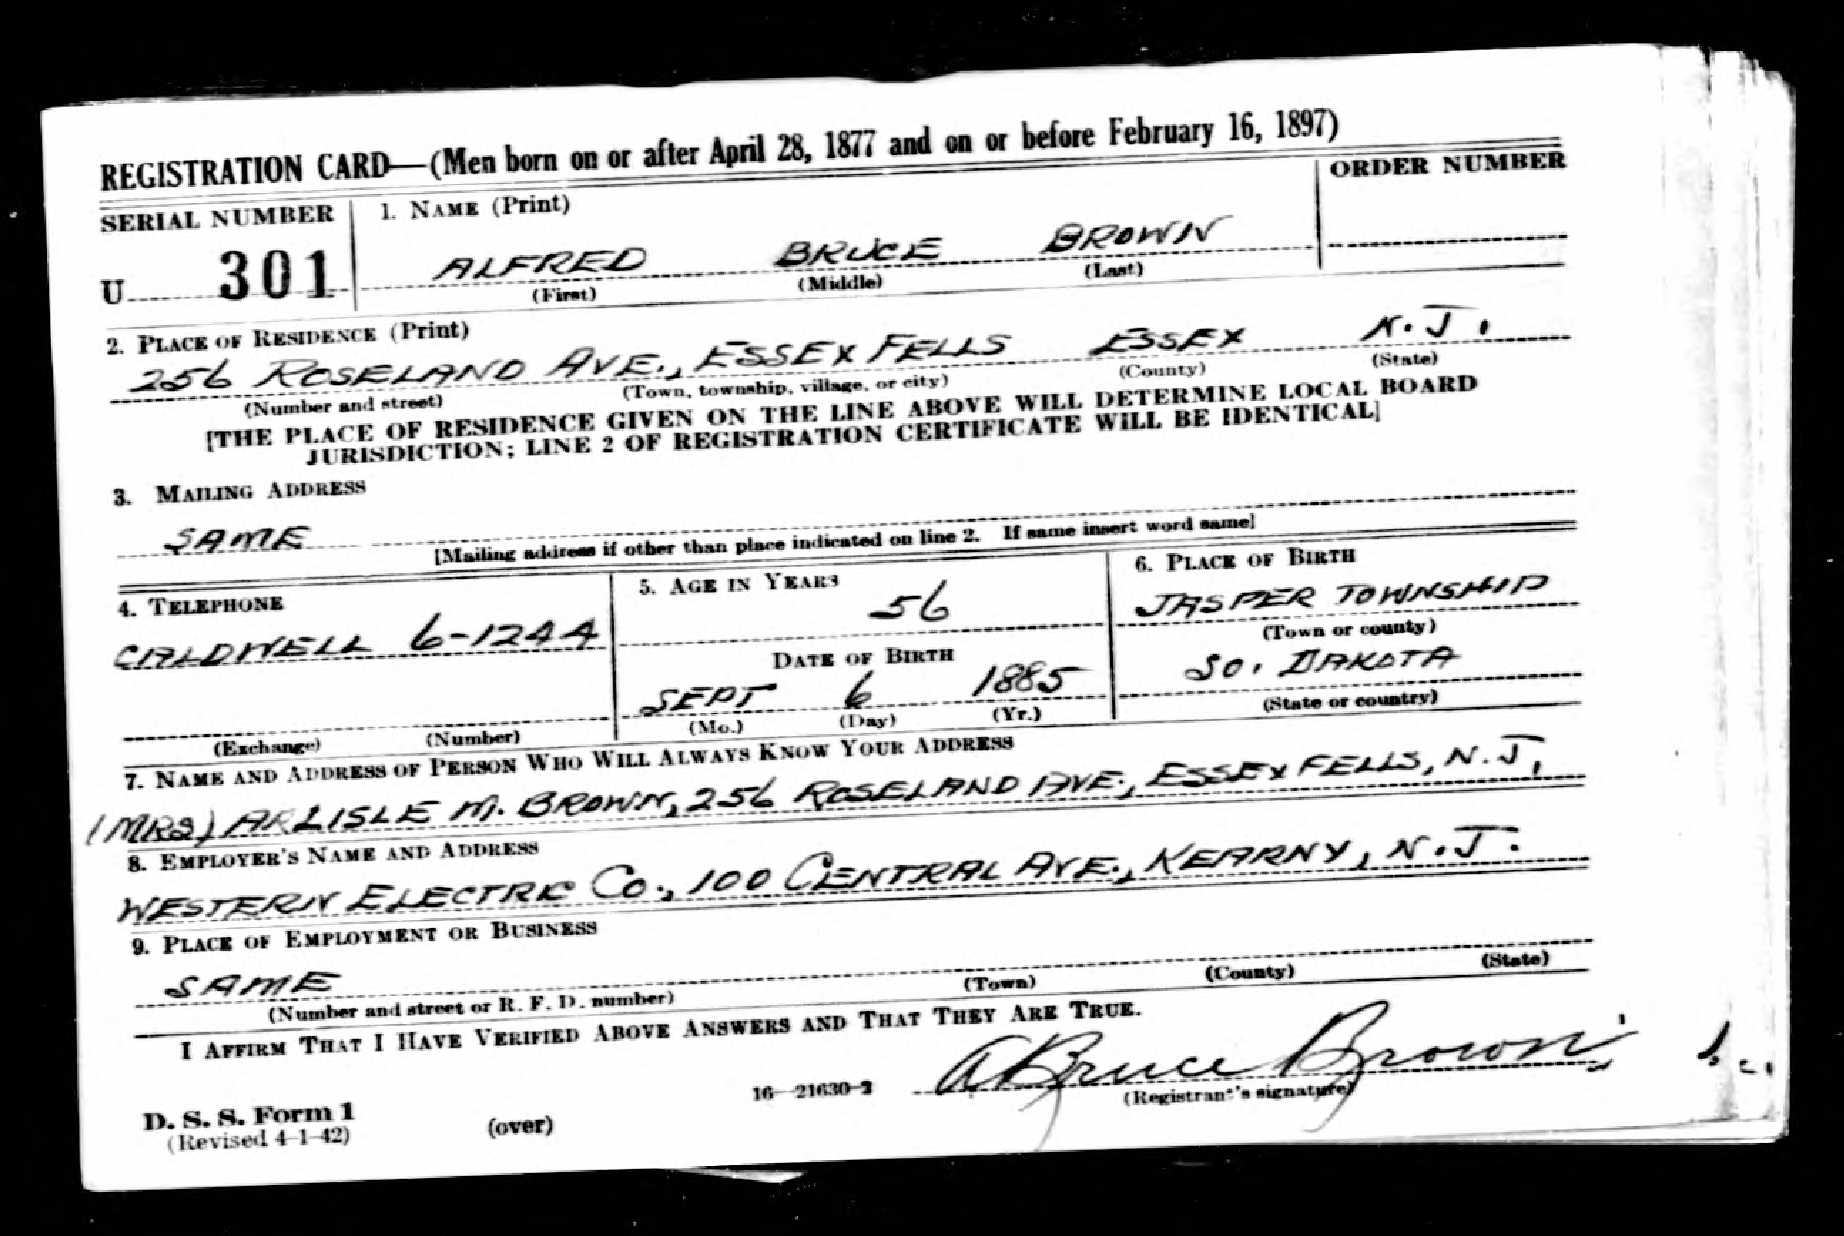 REGISTRATION CARD—(Men born on or after April 28, 1877 and on or before February 16, 1897)
SERIAL NUMBER
1. NAME (Print)
ORDER NUMBER
U 301
ALFRED BRUCE BROWN
(First) (Middle) (Last)
2. PLACE OF RESIDENCE (Print)
256 ROSELAND AVE., ESSEX FELLS ESSEX N.J.
(Number and street) (Town, township, village, or city) (County) (State)
[THE PLACE OF RESIDENCE GIVEN ON THE LINE ABOVE WILL DETERMINE LOCAL BOARD
JURISDICTION; LINE 2 OF REGISTRATION CERTIFICATE WILL BE IDENTICAL]
3. MAILING ADDRESS
SAME
[Mailing address if other than place indicated on line 2. If same insert word same]
4. TELEPHONE
CALDWELL 6-1244
(Exchange) (Number)
5. AGE IN YEARS
56
DATE OF BIRTH
SEPT 6 1885
(Mo.) (Day) (Yr.)
6. PLACE OF BIRTH
JASPER TOWNSHIP
(Town or county)
SO. DAKOTA
(State or country)
7. NAME AND ADDRESS OF PERSON WHO WILL ALWAYS KNOW YOUR ADDRESS
(MRS) ARLISLE M. BROWN, 256 ROSELAND AVE., ESSEX FELLS, N.J.
8. EMPLOYER'S NAME AND ADDRESS
WESTERN ELECTRIC CO., 100 CENTRAL AVE., KEARNY, N.J.
9. PLACE OF EMPLOYMENT OR BUSINESS
SAME
(Number and street or R. F. D. number) (Town) (County) (State)
I AFFIRM THAT I HAVE VERIFIED ABOVE ANSWERS AND THAT THEY ARE TRUE.
A Bruce Brown
D. S. S. Form 1
(Revised 4-1-42)
(over)
16—21630-2
(Registrant's signature)